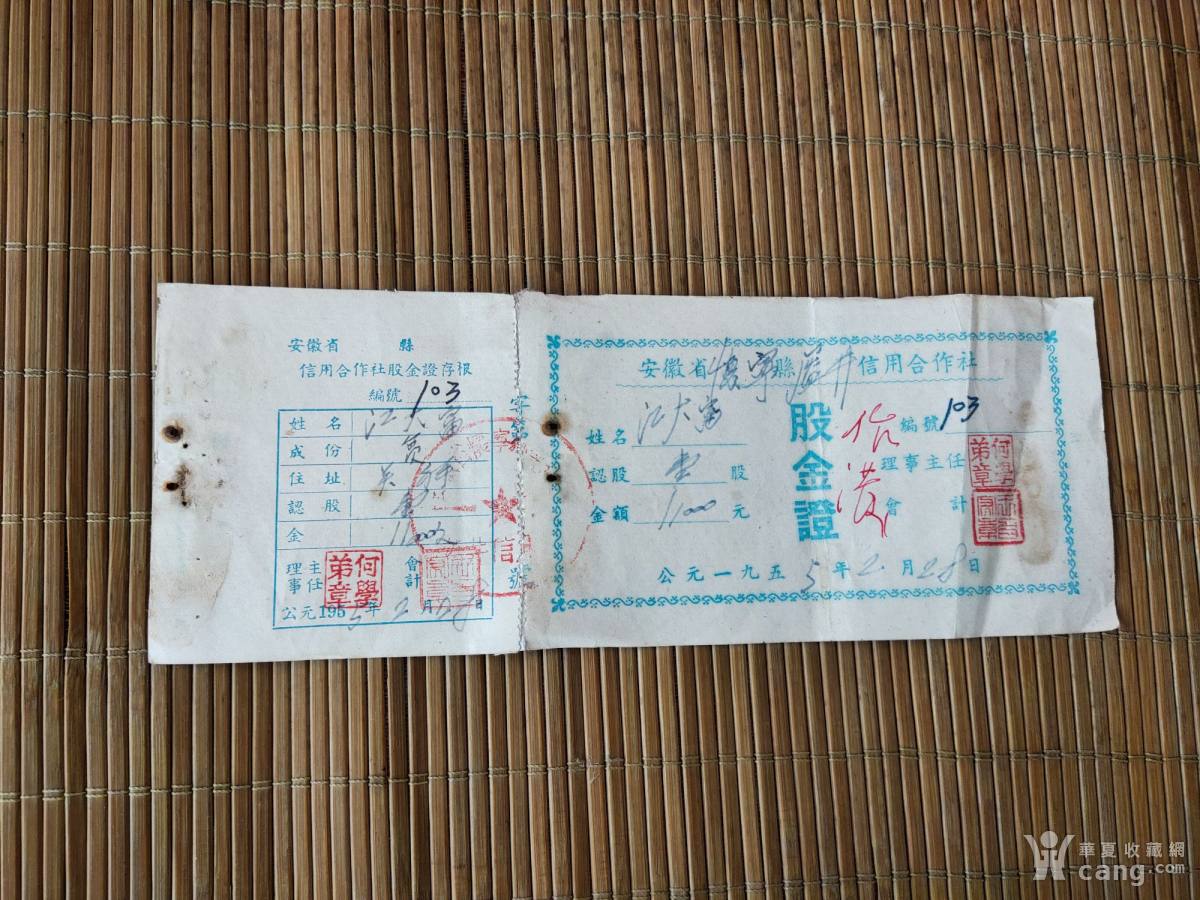 安徽省 縣
信用合作社股金證存根
編號 103
姓名 江大富
成份 貧
住址 吴
認股 壹
金 1,000
理事主任 何學弟章 會計
公元1955年2月28日
字第
信
號
安徽省懷寧縣 井信用合作社
股金證
作废
編號 103
姓名 江大富
理事主任 何學弟章
認股 壹 股
會計
金額 1,000 元
公元一九五5年2月28日
華夏收藏網
cang.com